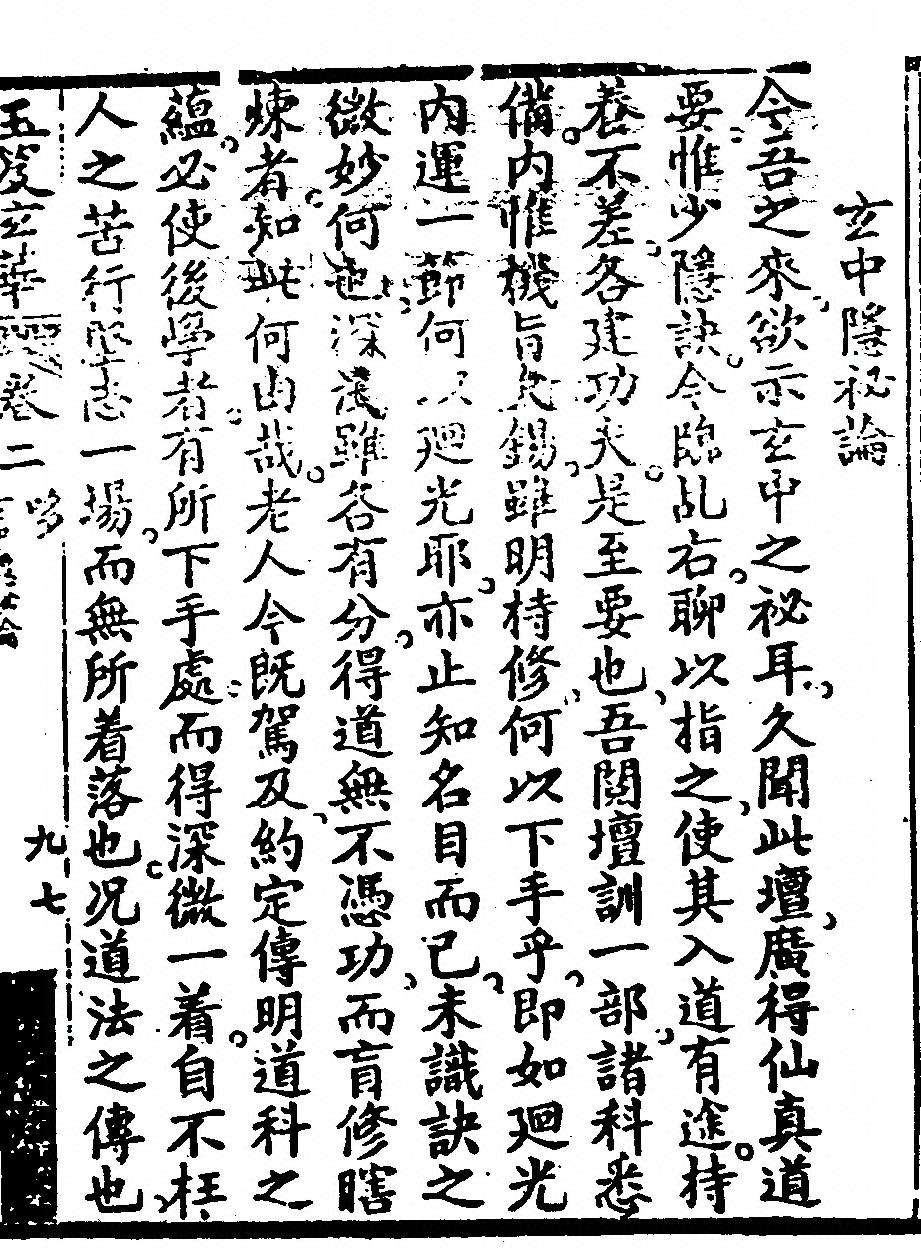 玄中隱祕論
今吾之來欲示玄中之祕耳久聞此壇廣得仙真道
要惟少隱訣今臨乩右聊以指之使其入道有途持
養不差各建功夫是至要也吾閱壇訓一部諸科悉
備內惟機旨欠錫雖明持修何以下手乎即如迴光
內運一節何以迴光耶亦止知名目而已未識訣之
微妙何也深淺雖各有分得道無不憑功而盲修瞎
煉者知此何由哉老人今既駕及約定傳明道科之
蘊必使後學者有所下手處而得深微一着自不枉
人之苦行堅志一場而無所着落也况道法之傳也
玉笈玄華 卷二 九七